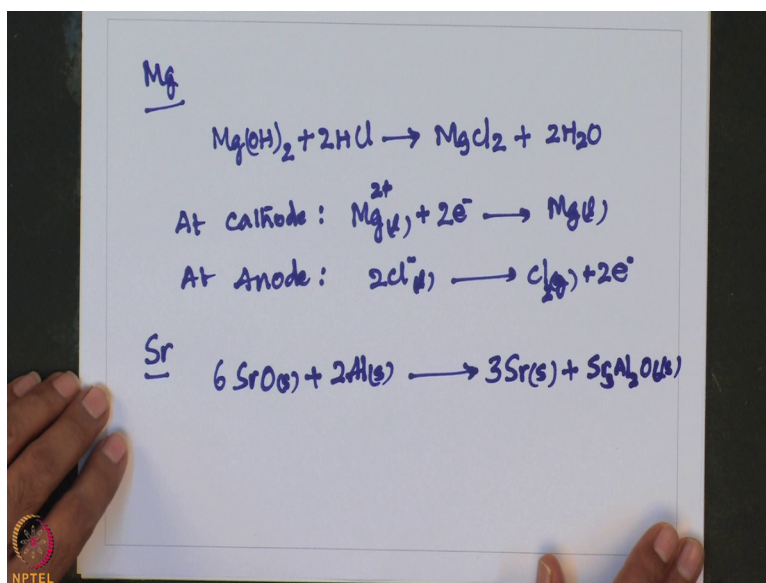 Mg
Mg(OH)₂ + 2HCl → MgCl₂ + 2H₂O
At Cathode : Mg²⁺(l) + 2e⁻ → Mg(l)
At Anode : 2Cl⁻(l) → Cl₂(g) + 2e⁻
Sr
6 SrO(s) + 2Al(s) → 3Sr(s) + Sr₃Al₂O₆(s)
NPTEL